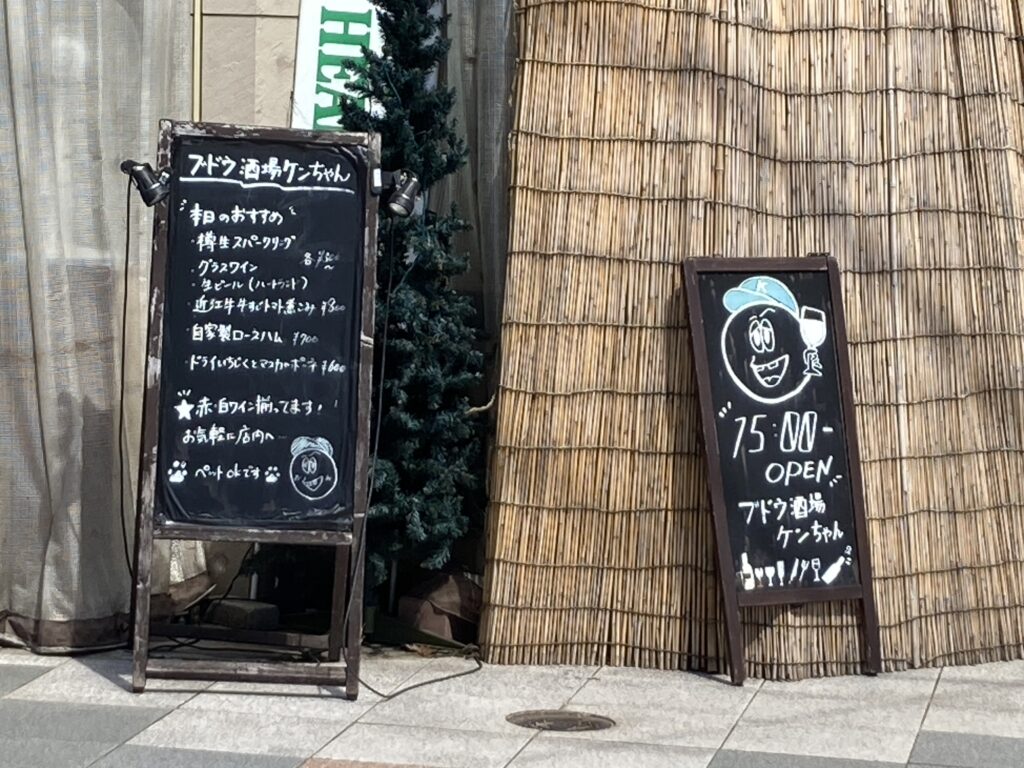 HEA
ブドウ酒場ケンちゃん
本日のおすすめ
・樽生スパークリング
・グラスワイン 各¥500～
・生ビール(ハートランド)
・近江牛牛すじトマト煮こみ ¥800
・自家製ロースハム ¥700
・ドライいちじくとマスカルポーネ ¥600
★赤・白ワイン揃ってます!
お気軽に店内へ
ペットOKです
K
15:00-
OPEN
ブドウ酒場
ケンちゃん